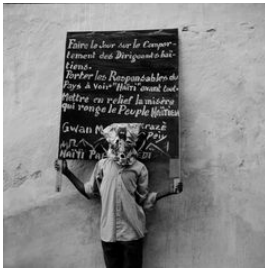 Faire le Jour sur le Compor-
tement des Dirigeants haï-
tiens.
Porter les Responsables du
Pays à voir "Haïti" avant tout.
Mettre en relief la misère
qui ronge le Peuple HAÏTIEN
Gwan M
Peiy
HAÏTI